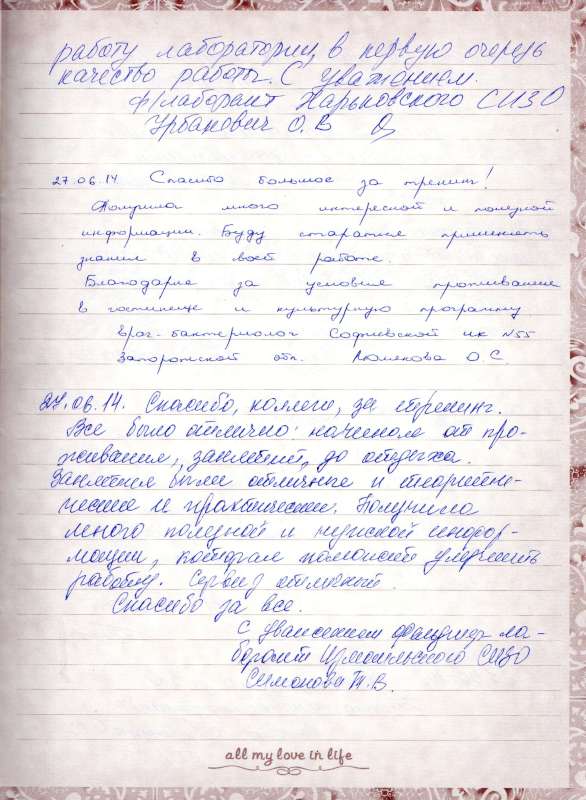 работу лаборатории, в первую очередь
качество работы. С уважением.
ф/лаборант Харьковского СИЗО
Урбанович О.В
27.06.14 Спасибо большое за тренинг!
Получила много интересной и полезной
информации. Буду стараться применять
знания в всей работе.
Благодарю за условия проживания
в гостинице и культурную программу.
врач-бактериолог Софиевской ик №55
Запорожской обл. О.С.
27.06.14. Спасибо, коллеги, за тренинг.
Все было отлично: начиная от про-
живания, занятий, до отдыха.
Занятия были отличные и теорети-
ческие и практические. Получила
много полезной и нужной инфор-
мации, которая поможет улучшить
работу. Сервис отличный.
Спасибо за все.
С уважением фельдшер ла-
борант Измаильского СИЗО
Симонова Т.В.
all my love in life